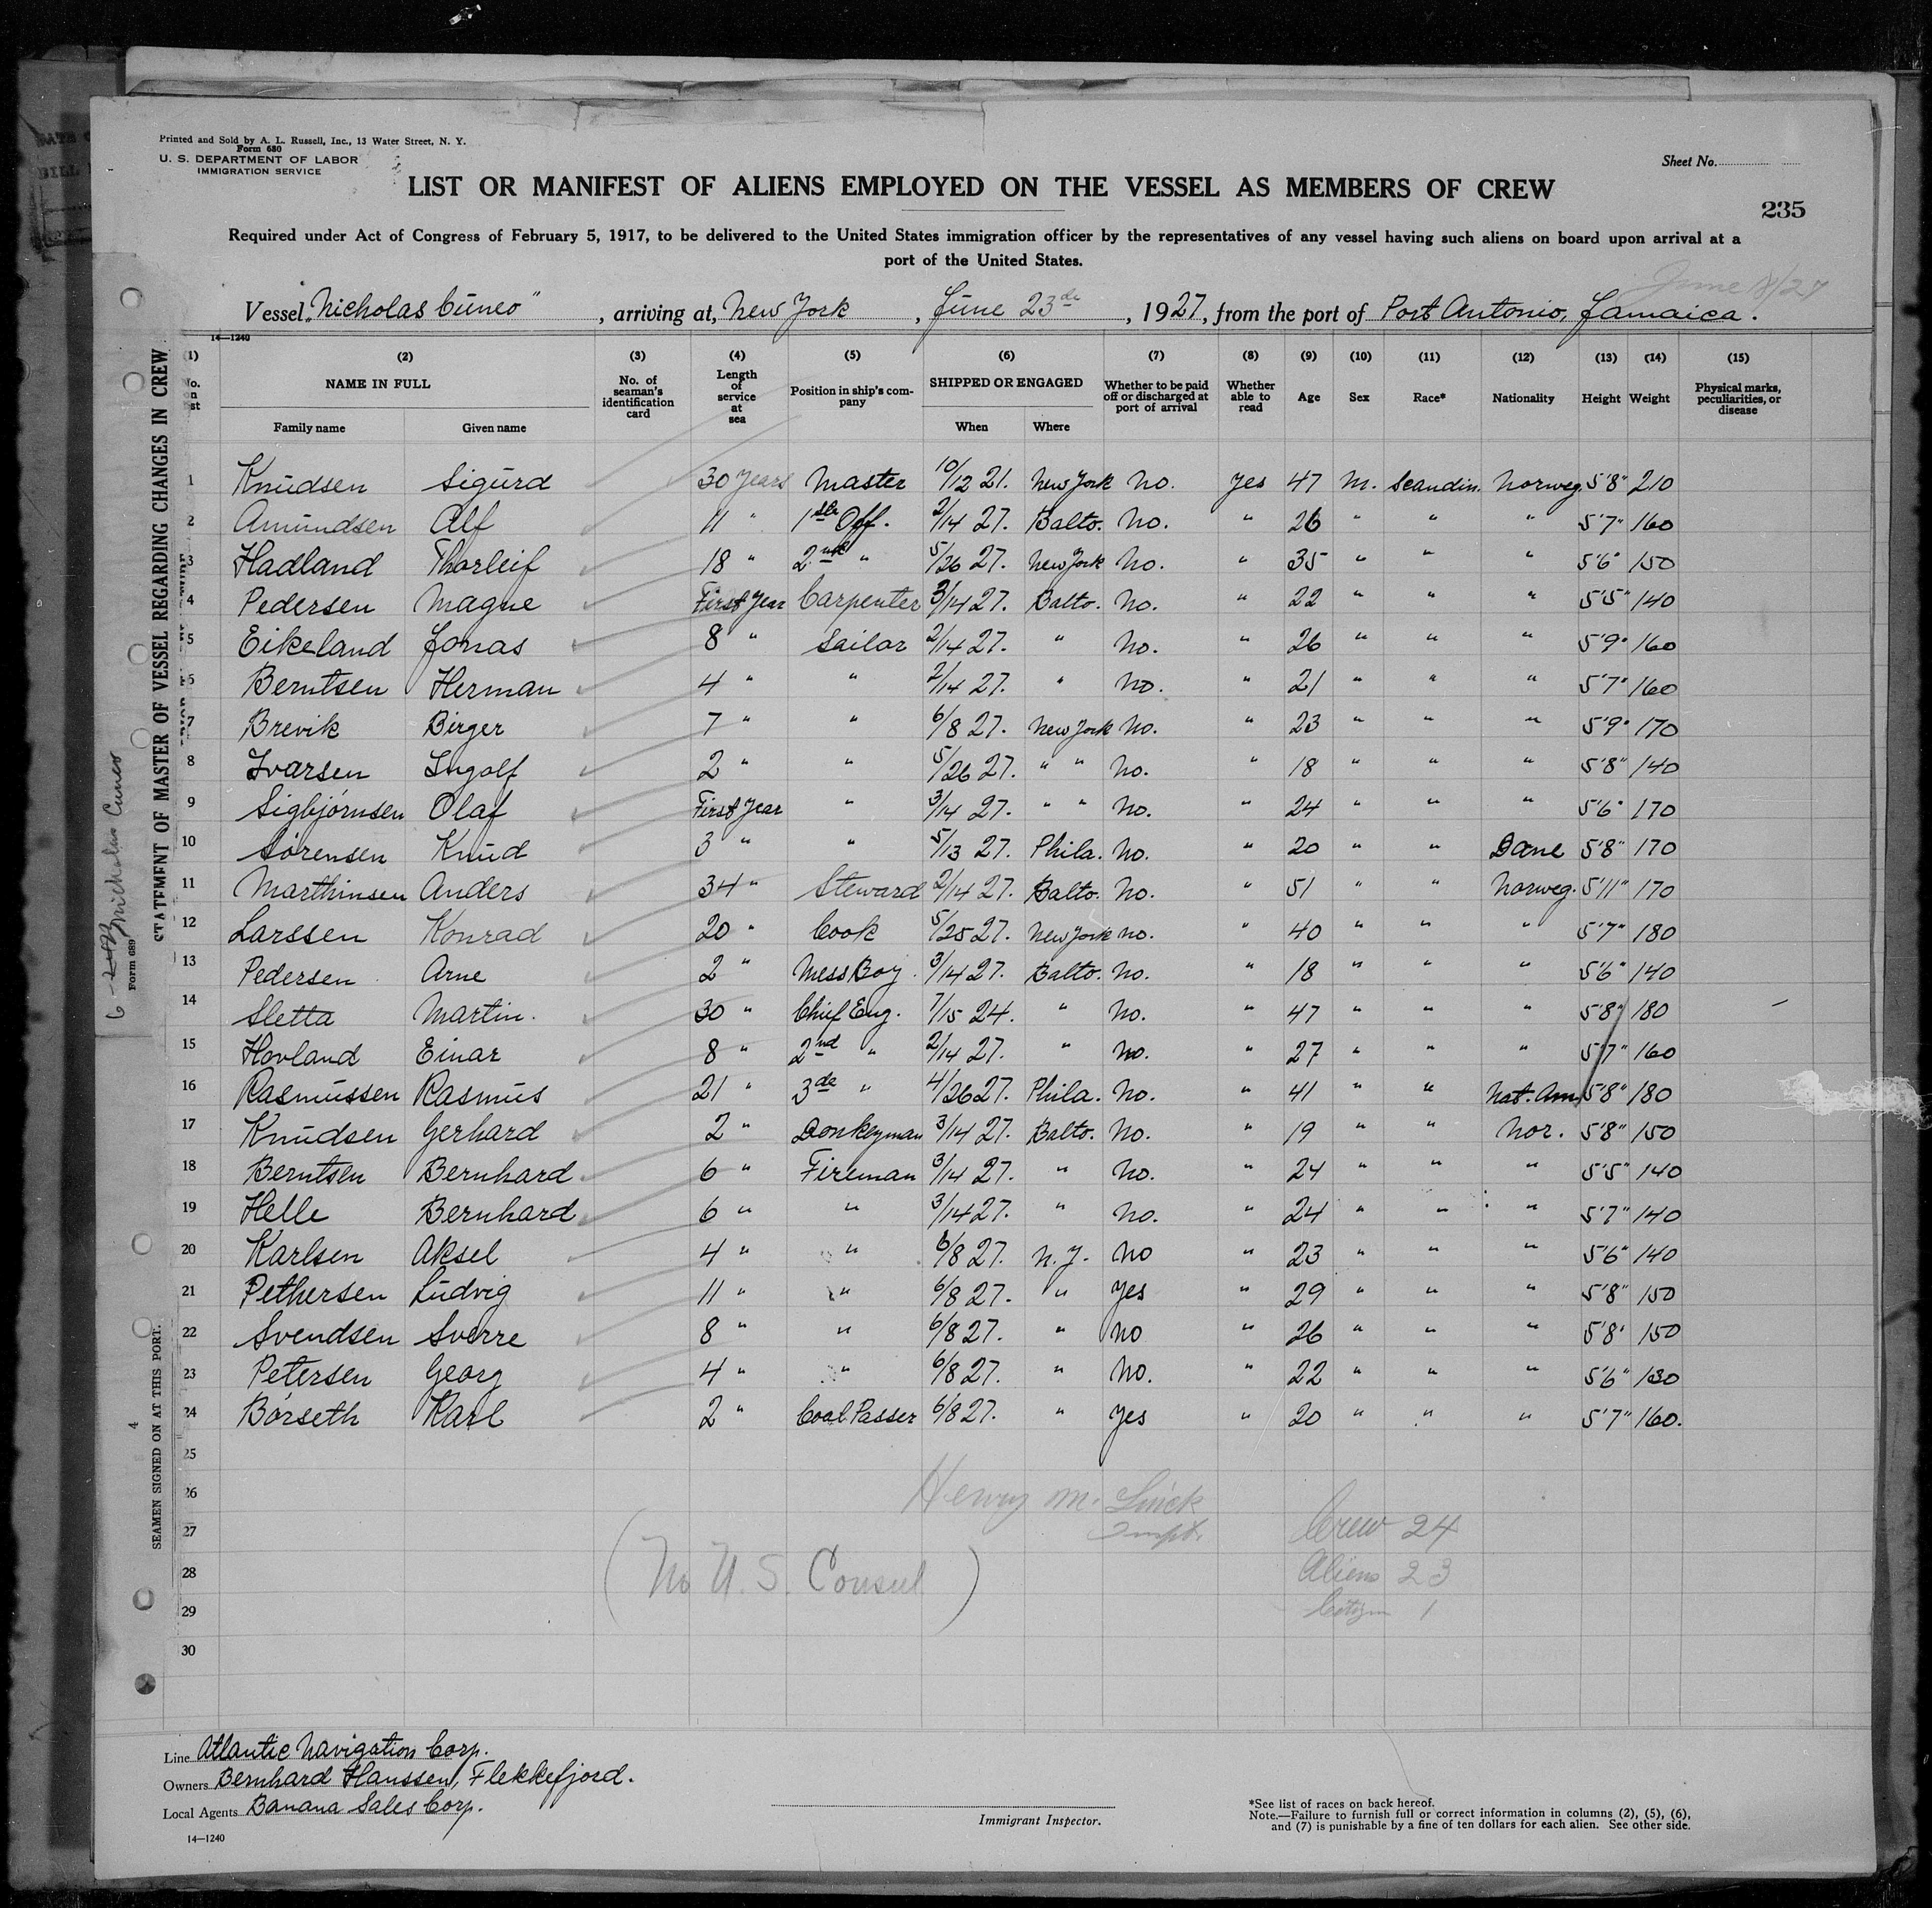 Printed and Sold by A. L. Russell, Inc., 13 Water Street, N. Y.
Form 680
U. S. DEPARTMENT OF LABOR
IMMIGRATION SERVICE
Sheet No.
LIST OR MANIFEST OF ALIENS EMPLOYED ON THE VESSEL AS MEMBERS OF CREW
235
Required under Act of Congress of February 5, 1917, to be delivered to the United States immigration officer by the representatives of any vessel having such aliens on board upon arrival at a
port of the United States.
Vessel "Nicholas Cuneo", arriving at, New York, June 23de, 1927, from the port of Port Antonio, Jamaica.
14—1240
(1) (2) (3) (4) (5) (6) (7) (8) (9) (10) (11) (12) (13) (14) (15)
NAME IN FULL No. of seaman's identification card Length of service at sea Position in ship's company SHIPPED OR ENGAGED Whether to be paid off or discharged at port of arrival Whether able to read Age Sex Race* Nationality Height Weight Physical marks, peculiarities, or disease
Family name Given name When Where
1 Knudsen Sigurd 30 years Master 10/12 21. New York No. Yes 47 M. Scandin. Norweg. 5'8" 210
2 Amundsen Alf 11 " 1ste Off. 2/14 27. Balto. No. " 26 " " " 5'7" 160
3 Hadland Thorleif 18 " 2nd " 5/26 27. New York No. " 35 " " " 5'6" 150
4 Pedersen Magne First year Carpenter 3/14 27. Balto. No. " 22 " " " 5'5" 140
5 Eikeland Jonas 8 " Sailor 2/14 27. " No. " 26 " " " 5'9" 160
6 Berntsen Herman 4 " " 2/14 27. " No. " 21 " " " 5'7" 160
7 Brevik Birger 7 " " 6/8 27. New York No. " 23 " " " 5'9" 170
8 Ivarsen Ingolf 2 " " 5/26 27. " " No. " 18 " " " 5'8" 140
9 Sigbjörnsen Olaf First year " 3/14 27. " " No. " 24 " " " 5'6" 170
10 Sörensen Knud 3 " " 5/13 27. Phila. No. " 20 " " Dane 5'8" 170
11 Marthinsen Anders 34 " Steward 2/14 27. Balto. No. " 51 " " Norweg. 5'11" 170
12 Larssen Konrad 20 " Cook 5/25 27. New York no. " 40 " " " 5'7" 180
13 Pedersen Arne 2 " Mess Boy. 3/14 27. Balto. No. " 18 " " " 5'6" 140
14 Sletta Martin. 30 " Chief Eng. 7/15 24. " No. " 47 " " " 5'8" 180
15 Hovland Einar 8 " 2nd " 2/14 27. " No. " 27 " " " 5'7" 160
16 Rasmussen Rasmus 21 " 3de " 4/26 27. Phila. No. " 41 " " Nat. Am. 5'8" 180
17 Knudsen Gerhard 2 " Donkeyman 3/14 27. Balto. No. " 19 " " Nor. 5'8" 150
18 Berntsen Bernhard 6 " Fireman 3/14 27. " No. " 24 " " " 5'5" 140
19 Helle Bernhard 6 " " 3/14 27. " No. " 24 " " " 5'7" 140
20 Karlsen Aksel 4 " " 6/8 27. N.Y. No " 23 " " " 5'6" 140
21 Pethersen Ludvig 11 " " 6/8 27. " Yes " 29 " " " 5'8" 150
22 Svendsen Sverre 8 " " 6/8 27. " No " 26 " " " 5'8" 150
23 Petersen Georg 4 " " 6/8 27. " No. " 22 " " " 5'6" 130
24 Börseth Karl 2 " Coal Passer 6/8 27. " Yes " 20 " " " 5'7" 160.
25
26 Henry M.
27 Inspt. Crew 24
28 (No U. S. Consul) Aliens 23
29 Citizen 1
30
Line Atlantic Navigation Corp.
Owners Bernhard Hanssen, Flekkefjord.
Local Agents Banana Sales Corp.
14—1240
Immigrant Inspector.
*See list of races on back hereof.
Note.—Failure to furnish full or correct information in columns (2), (5), (6),
and (7) is punishable by a fine of ten dollars for each alien. See other side.
STATEMENT OF MASTER OF VESSEL REGARDING CHANGES IN CREW
Nicholas Cuneo
Form 689
SEAMEN SIGNED ON AT THIS PORT.
4